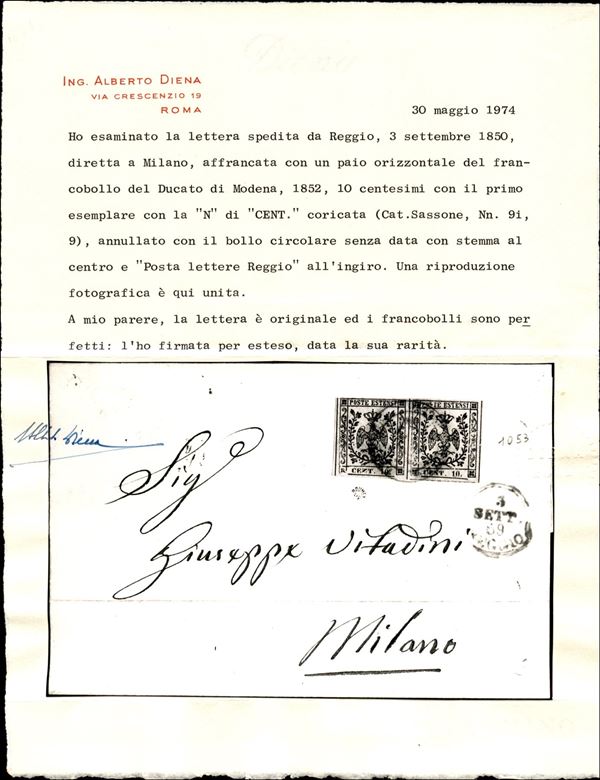 Diena
ING. ALBERTO DIENA
VIA CRESCENZIO 19
ROMA
30 maggio 1974
Ho esaminato la lettera spedita da Reggio, 3 settembre 1850,
diretta a Milano, affrancata con un paio orizzontale del fran-
cobollo del Ducato di Modena, 1852, 10 centesimi con il primo
esemplare con la "N" di "CENT." coricata (Cat.Sassone, Nn. 9i,
9), annullato con il bollo circolare senza data con stemma al
centro e "Posta lettere Reggio" all'ingiro. Una riproduzione
fotografica è qui unita.
A mio parere, la lettera è originale ed i francobolli sono per
fetti: l'ho firmata per esteso, data la sua rarità.
POSTE ESTENSI POSTE ESTENSI
CEZT. 10. CENT. 10.
1053
Alberto Diena
Sig
3
SETT.
59
REGGIO
Giuseppe Vitadini
Milano